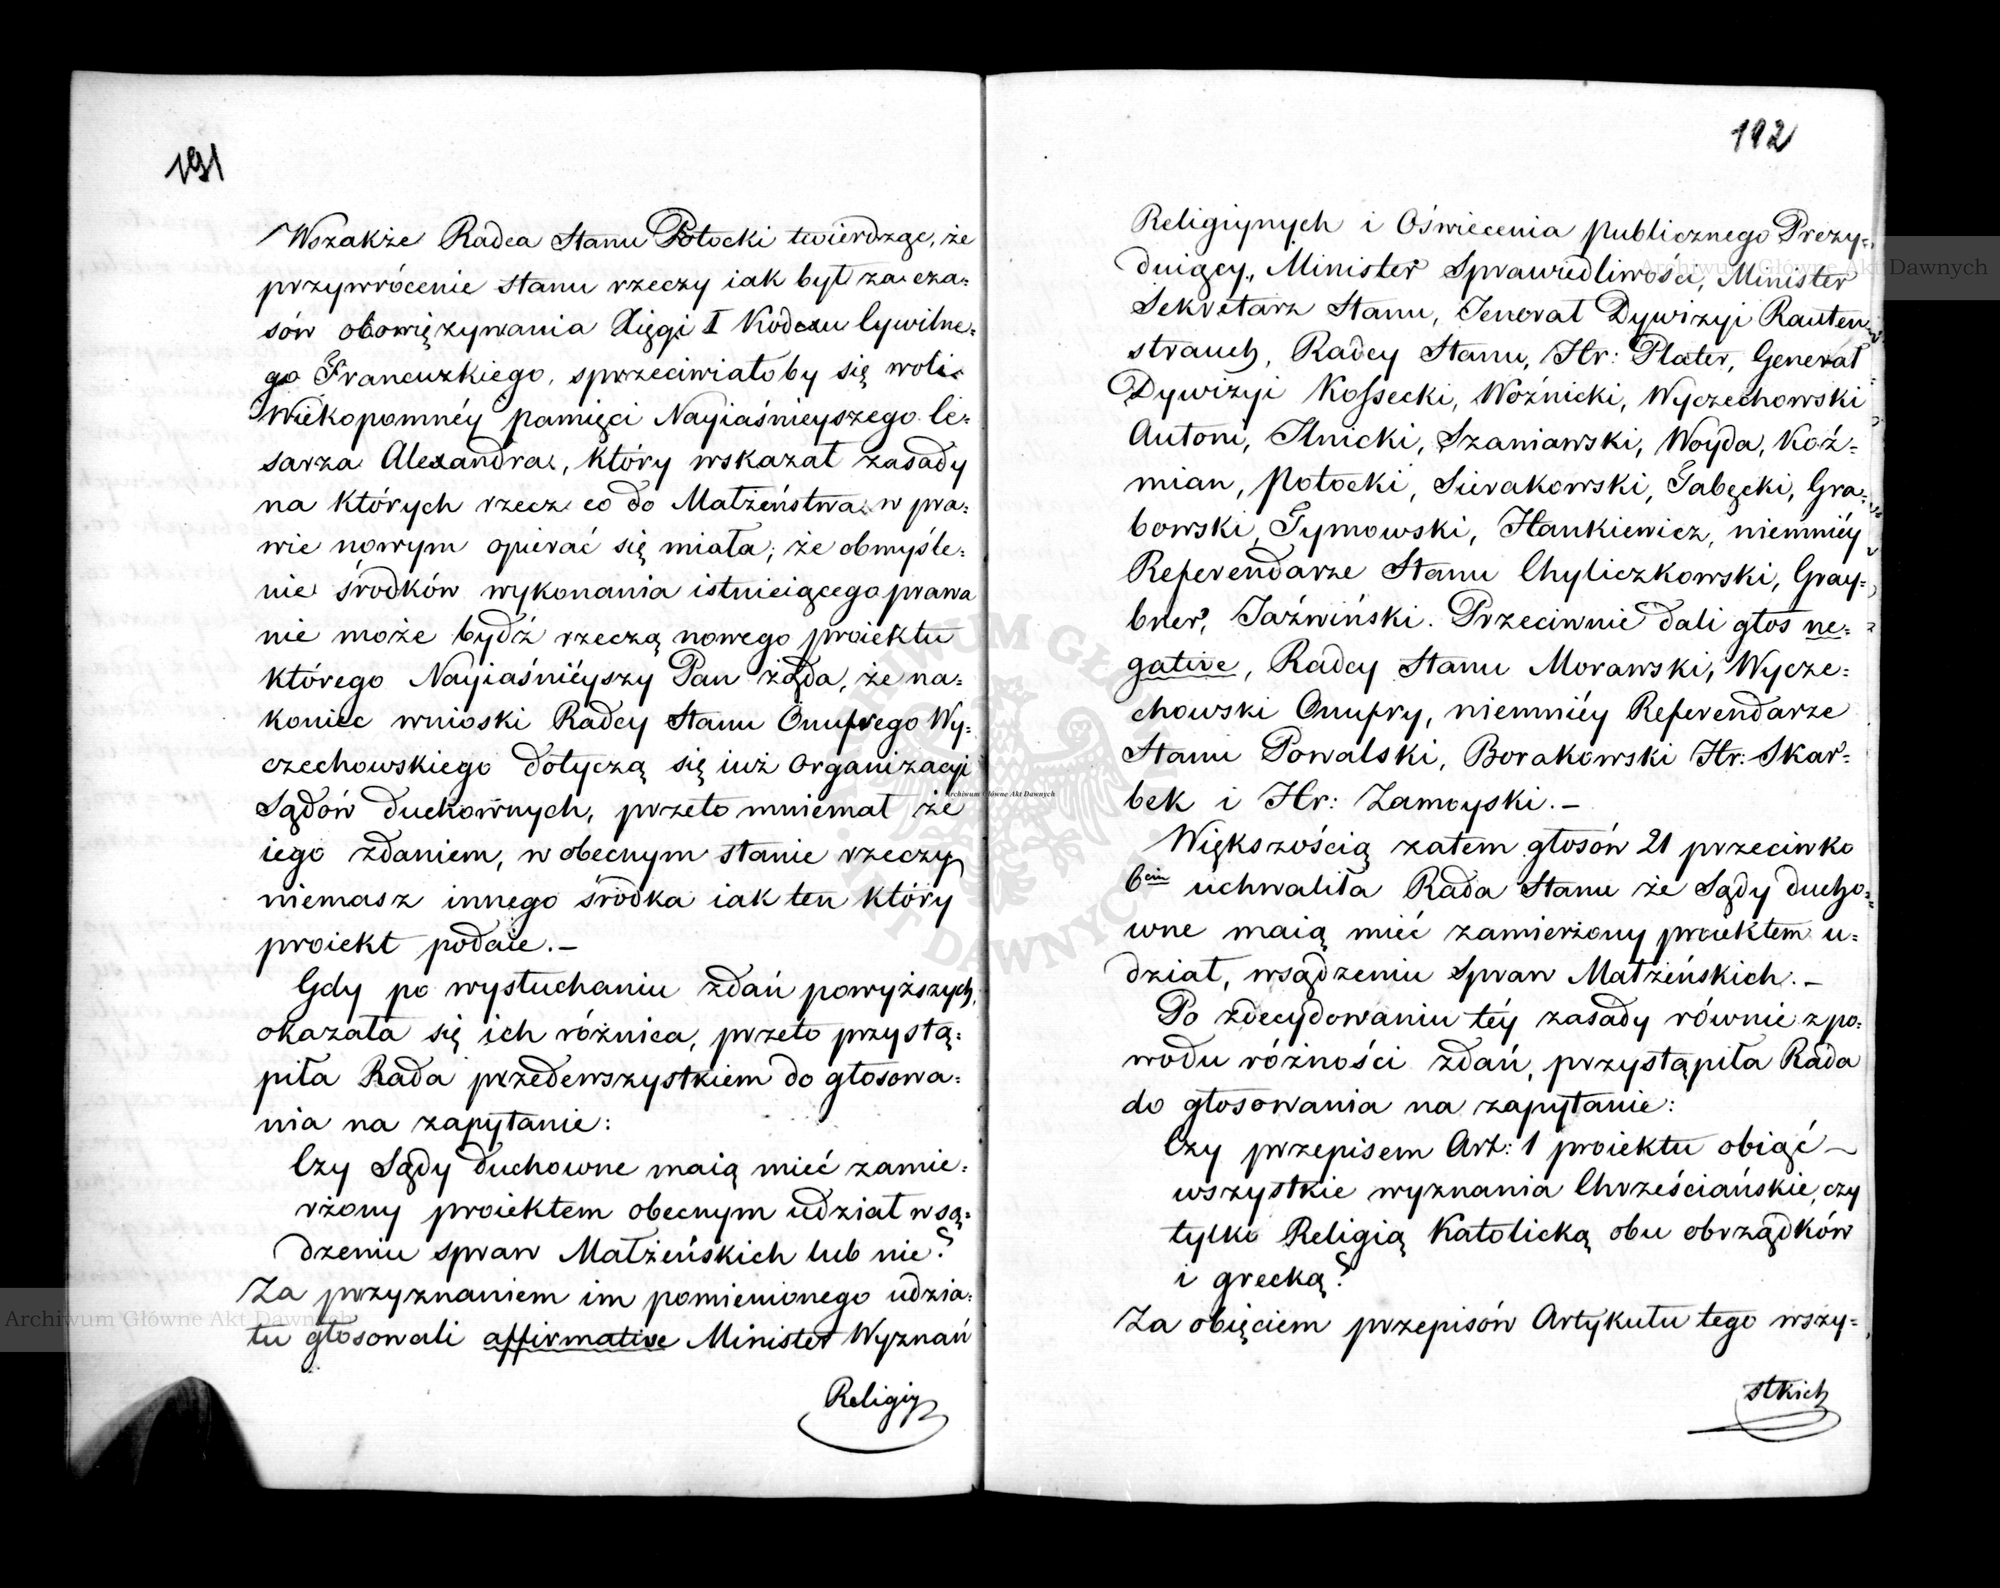 191
Wszakże Radca Stanu Potocki twierdząc, że
przywrócenie stanu rzeczy iak był za cza=
sów obowięzywania Xięgi I Kodexu Cywilne=
go Francuzkiego, sprzeciwiałoby się woli
Wiekopomnéy pamięci Nayiaśnieyszego Ce=
sarza Alexandra, który wskazał zasady
na których rzecz co do Małżeństwa w pra=
wie nowym opierać się miała; że obmyśle=
nie środków wykonania istnieiącego prawa
nie może bydź rzeczą nowego proiektu
którego Nayiaśniéyszy Pan żąda, że na=
koniec wnioski Radcy Stanu Onufrego Wy=
czechowskiego dotyczą się iuż Organizacyi
Sądów duchownych, przeto mniemał że
iego zdaniem, w obecnym stanie rzeczy
niemasz innego środka iak ten który
proiekt podaie.—
Gdy po wysłuchaniu zdań powyższych,
okazała się ich różnica, przeto przystą=
piła Rada przedewszystkiem do głosowa=
nia na zapytanie:
Czy Sądy duchowne maią mieć zamie=
rżony proiektem obecnym udział w są=
dzeniu spraw Małżeńskich lub nie?
Za przyznaniem im pomienionego udzia=
łu głosowali affirmative Minister Wyznań
Religiy
192
Religiynych i Oświecenia publicznego Prezy=
duiący, Minister Sprawiedliwości, Minister
Sekretarz Stanu, Jenerał Dywizyi Rauten
strauch, Radcy Stanu, Hr: Plater, Generał
Dywizyi Kossecki, Woźnicki, Wyczechowski
Antoni, Ilnicki, Szaniawski, Woyda, Koź=
mian, Potocki, Sierakowski, Jabęcki, Gra=
bowski, Tymowski, Hankiewicz, niemniéy
Referendarze Stanu Chyliczkowski, Gray=
bner, Jaźwiński. Przeciwnie dali głos ne=
gative, Radcy Stanu Morawski, Wycze=
chowski Onufry, niemniéy Referendarze
Stanu Powalski, Borakowski Hr: Skar=
bek i Hr: Zamoyski.—
Większością zatem głosów 21 przeciwko
6ciu uchwaliła Rada Stanu że Sądy ducho=
wne maią mieć zamierżony proiektem u=
dział, w sądzeniu Spraw Małżeńskich.—
Po zdecydowaniu téy zasady równie z po=
wodu różności zdań, przystąpiła Rada
do głosowania na zapytanie:
Czy przepisem Art: 1 proiektu obiąć —
wszystkie wyznania Chrześciańskie, czy
tylko Religią Katolicką obu obrządków
i grecką?
Za obięciem przepisów Artykułu tego wszy=
stkich